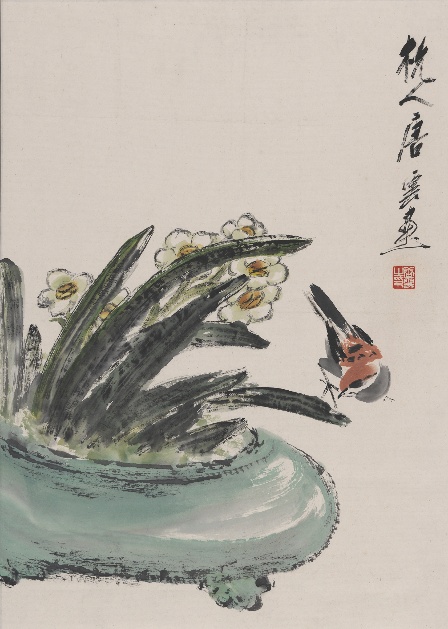 杭人唐雲畫